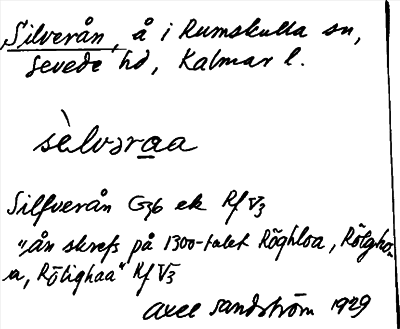 Silverån, å i Rumskulla sn,
Sevede hd, Kalmar l.
sèlvəraa
Silfverån G36 ek Rf V3
"ån skrefs på 1300-talet Röghloa, Rölgho-
a, Rölighaa" Rf V3
Axel Sandström 1929